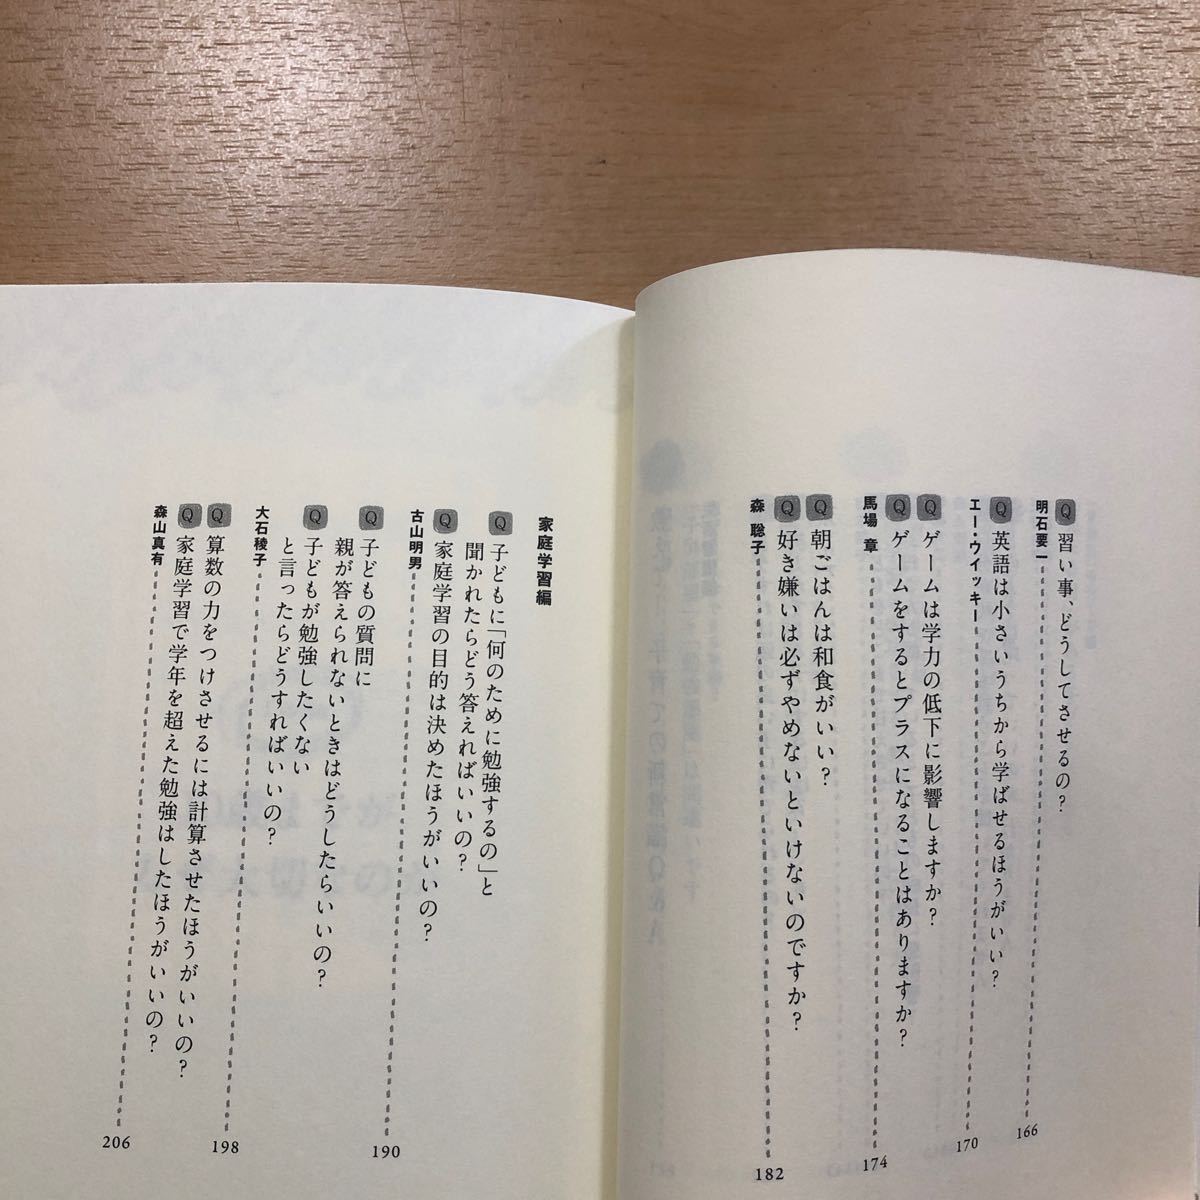 Q 習い事、どうしてさせるの?
明石要一 166
Q 英語は小さいうちから学ばせるほうがいい?
エー・ウィッキー 170
Q ゲームは学力の低下に影響しますか?
Q ゲームをするとプラスになることはありますか?
馬場 章 174
Q 朝ごはんは和食がいい?
Q 好き嫌いは必ずやめないといけないのですか?
森 聡子 182
家庭学習編
Q 子どもに「何のために勉強するの」と
聞かれたらどう答えればいいの?
Q 家庭学習の目的は決めたほうがいいの?
古山明男 190
Q 子どもの質問に
親が答えられないときはどうしたらいいの?
Q 子どもが勉強したくない
と言ったらどうすればいいの?
大石稜子 198
Q 算数の力をつけさせるには計算させたほうがいいの?
Q 家庭学習で学年を超えた勉強はしたほうがいいの?
森山真有 206